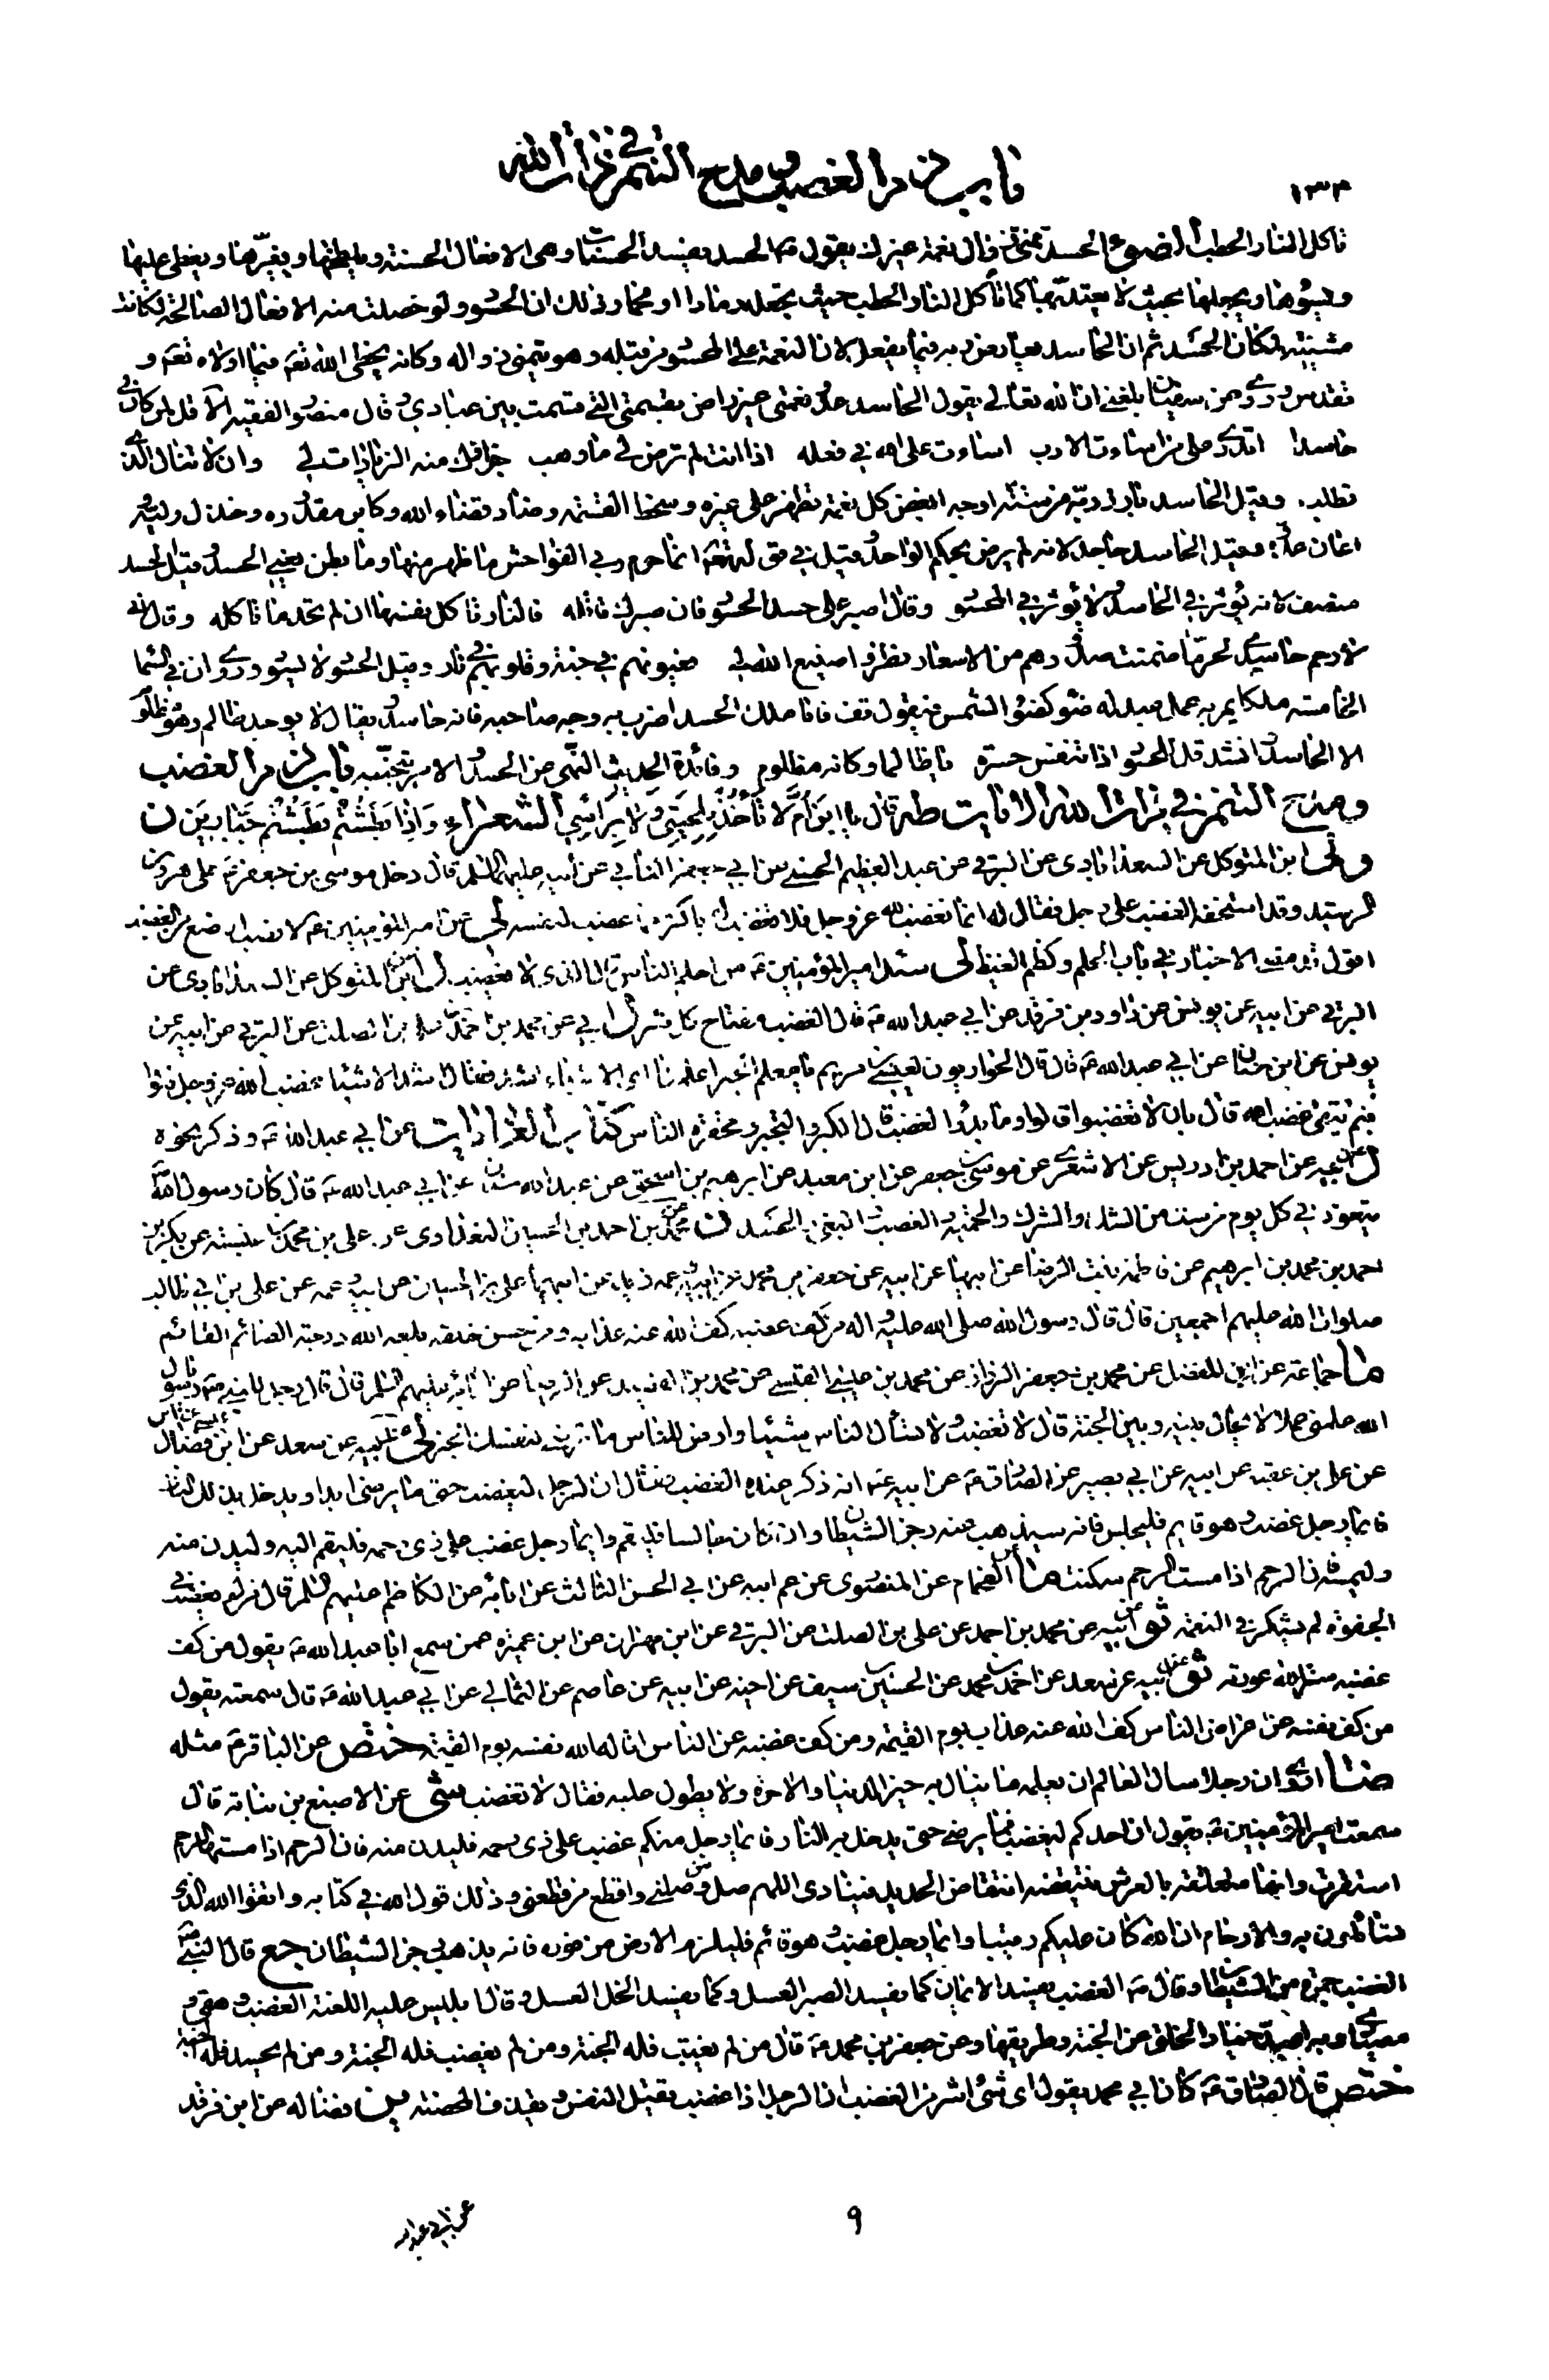 باب ذم الغضب و مدح التنمر في ذات الله
١٣٣
تاكل النار الحطب الضوء الحسد تمني زوال نعمة غيرك يقول ص الحسد يفسد الحسنات و هي الافعال الحسنة و يغيرها و يغطي عليها
و يجعلها بحيث لا يعتد بها كما تأكل النار الحطب حيث تجعله رمادا او فحما و ذلك ان الحسود لو حصلت منه الافعال الصالحة لكانت
لمكان الحسد ثم ان الحاسد يعاب فيما يفعل لان النعمة على المحسود من قبله و هو يتمنى زواله و كانه يخطئ الله تعالى فيما اولاه نعمه و
بلغني ان الله تعالى يقول الحاسد عدو نعمتي غير راض بقسمتي التي قسمت بين عبادي و قال منصور الفقيه الا قل لمن كان لي
حاسدا اتدري على من اسأت الادب اسأت على الله في فعله اذا انت لم ترض لي ما وهب جزاؤك منه الزيادات لي و ان لا تنال الذي
تطلب و قيل الحاسد يبغض كل نعمة تظهر على غيره و سخط القسمة و ضاد قضاء الله و كابر مقدوره
و قيل الحاسد جاحد لانه لم يرض بحكم الواحد و قيل في قوله تعالى انما حرم ربي الفواحش ما ظهر منها و ما بطن يعني الحسد قيل الحسد
منصف لانه يؤثر في الحاسد ما لا يؤثر في المحسود و قال اصبر على حسد الحسود فان صبرك قاتله فالنار تاكل نفسها ان لم تجد ما تاكله و قال
و قيل الحسود لا يسود و روي ان في السماء
الخامسة ملكا يمر به عمل عبد له ضوء كضوء الشمس فيقول قف فانا ملك الحسد اضرب به وجه صاحبه فانه حاسد يقال لا يوجد ظالم و هو مظلوم
الا الحاسد انشد قل للحسود اذا تنفس حسرة يا ظالما و كانه مظلوم و فائدة الحديث النهي عن الحسد و الامر بتجنبه باب ذم الغضب
و مدح التنمر في ذات الله الايات طه قال يا ابن أم لا تأخذ بلحيتي و لا برأسي الشعراء و اذا بطشتم بطشتم جبارين ن
لي ابن المتوكل عن السعدابادي عن البرقي عن عبد العظيم الحسني عن ابي جعفر الثاني عن ابيه عليهما السلم قال دخل موسى بن جعفر ع على هرون
الرشيد و قد استخفه الغضب على رجل فقال له انما تغضب لله عز و جل فلا تغضب له باكثر مما غضب لنفسه لي عن امير المؤمنين ع لا نسب اوضع من الغضب
اقول قد مضت الاخبار في باب الحلم و كظم الغيظ لي سئل امير المؤمنين ع من احلم الناس قال الذي لا يغضب ل ابن المتوكل عن السعدابادي عن
البرقي عن ابيه عن يونس عن داود بن فرقد عن ابي عبد الله ع قال الغضب مفتاح كل شر ل ابي عن محمد بن احمد عن علي بن الصلت عن البرقي عن ابيه عن
يونس عن ابن سنان عن ابي عبد الله ع قال قال الحواريون لعيسى بن مريم يا معلم الخير اعلمنا اي الاشياء اشد فقال اشد الاشياء غضب الله عز و جل قالوا
فبم يتقى غضب الله قال بان لا تغضبوا قالوا و ما بدؤ الغضب قال الكبر و التجبر و محقرة الناس كتاب الغايات عن ابي عبد الله ع و ذكر نحوه
ل ابيه عن احمد بن ادريس عن الاشعري عن موسى بن جعفر عن ابن معبد عن ابراهيم بن اسحق عن عبد الله بن سنان عن ابي عبد الله ع قال كان رسول الله ص
يتعوذ في كل يوم من ست من الشك و الشرك و الحمية و الغضب و البغي و الحسد ن محمد بن احمد بن الحسين البغدادي عن علي بن محمد بن عنبسة عن بكر بن
احمد بن محمد بن ابراهيم عن فاطمة بنت الرضا عن ابيها عن ابيه عن جعفر بن محمد عن ابيه و عمه زيد عن ابيهما علي بن الحسين عن ابيه و عمه عن علي بن ابي طالب
صلوات الله عليهم اجمعين قال قال رسول الله صلى الله عليه و اله من كف غضبه كف الله عنه عذابه و من حسن خلقه بلغه الله درجة الصائم القائم
ما جماعة عن ابي المفضل عن محمد بن جعفر الرزاز عن محمد بن عيسى القيسي عن محمد بن الفضيل عن الرضا عن ابائه عليهم السلم قال قال رجل للنبي ص يا رسول
الله علمني عملا لا يحال بينه و بين الجنة قال لا تغضب و لا تسأل الناس شيئا و ارض للناس ما ترضى لنفسك الخبر لي ابيه عن سعد عن ابن فضال
عن علي بن عقبة عن ابيه عن ابي بصير عن الصادق ع عن ابيه ع انه ذكر عنده الغضب فقال ان الرجل ليغضب حتى ما يرضى ابدا و يدخل بذلك النار
فايما رجل غضب و هو قايم فليجلس فانه سيذهب عنه رجز الشيطان و ان كان جالسا فليقم و ايما رجل غضب على ذي رحمه فليقم اليه و ليدن منه
و ليمسه فان الرحم اذا مست الرحم سكنت ما الفحام عن المنصوري عن عم ابيه عن ابي الحسن الثالث عن ابائه عن الكاظم عليهم السلم قال من لم يغضب في
الجفوة لم يشكر في النعمة ثو ابيه عن محمد بن احمد عن علي بن الصلت عن البرقي عن ابن مهران عن ابن عميرة عمن سمع ابا عبد الله ع يقول من كف
غضبه ستر الله عورته ثو ابيه عن سعد عن احمد بن محمد عن الحسين بن سيف عن اخيه عن ابيه عن عاصم عن الثمالي عن ابي عبد الله ع قال سمعته يقول
من كف نفسه عن اعراض الناس كف الله عنه عذاب يوم القيمة و من كف غضبه عن الناس اقاله الله نفسه يوم القيمة ختص عن الباقر ع مثله
ضا اروي ان رجلا سال العالم ان يعلمه ما ينال به خير الدنيا و الاخرة و لا يطول عليه فقال لا تغضب شي عن الاصبغ بن نباتة قال
سمعت امير المؤمنين ع يقول ان احدكم ليغضب فما يرضى حتى يدخل به النار فايما رجل منكم غضب على ذي رحمه فليدن منه فان الرحم اذا مستها الرحم
استقرت و انها متعلقة بالعرش تنتقضه انتقاض الحديد فينادي اللهم صل من وصلني و اقطع من قطعني و ذلك قول الله في كتابه و اتقوا الله الذي
تسائلون به و الارحام ان الله كان عليكم رقيبا و ايما رجل غضب و هو قائم فليلزم الارض من فوره فانه يذهب رجز الشيطان جع قال النبي ص
الغضب جمرة من الشيطان و قال ص الغضب يفسد الايمان كما يفسد الصبر العسل و كما يفسد الخل العسل و قال ابليس عليه اللعنة الغضب وهقي و
مصيادي و به اصد خيار الخلق عن الجنة و طريقها و عن جعفر بن محمد ع قال من لم يغتب فله الجنة و من لم يغضب فله الجنة و من لم يحسد فله الجنة
ختص قال الصادق ع كان ابي محمد يقول اي شيء اشر من الغضب ان الرجل اذا غضب يقتل النفس و يقذف المحصنة ين فضالة عن ابن فرقد
٩
عن ابي عبد الله